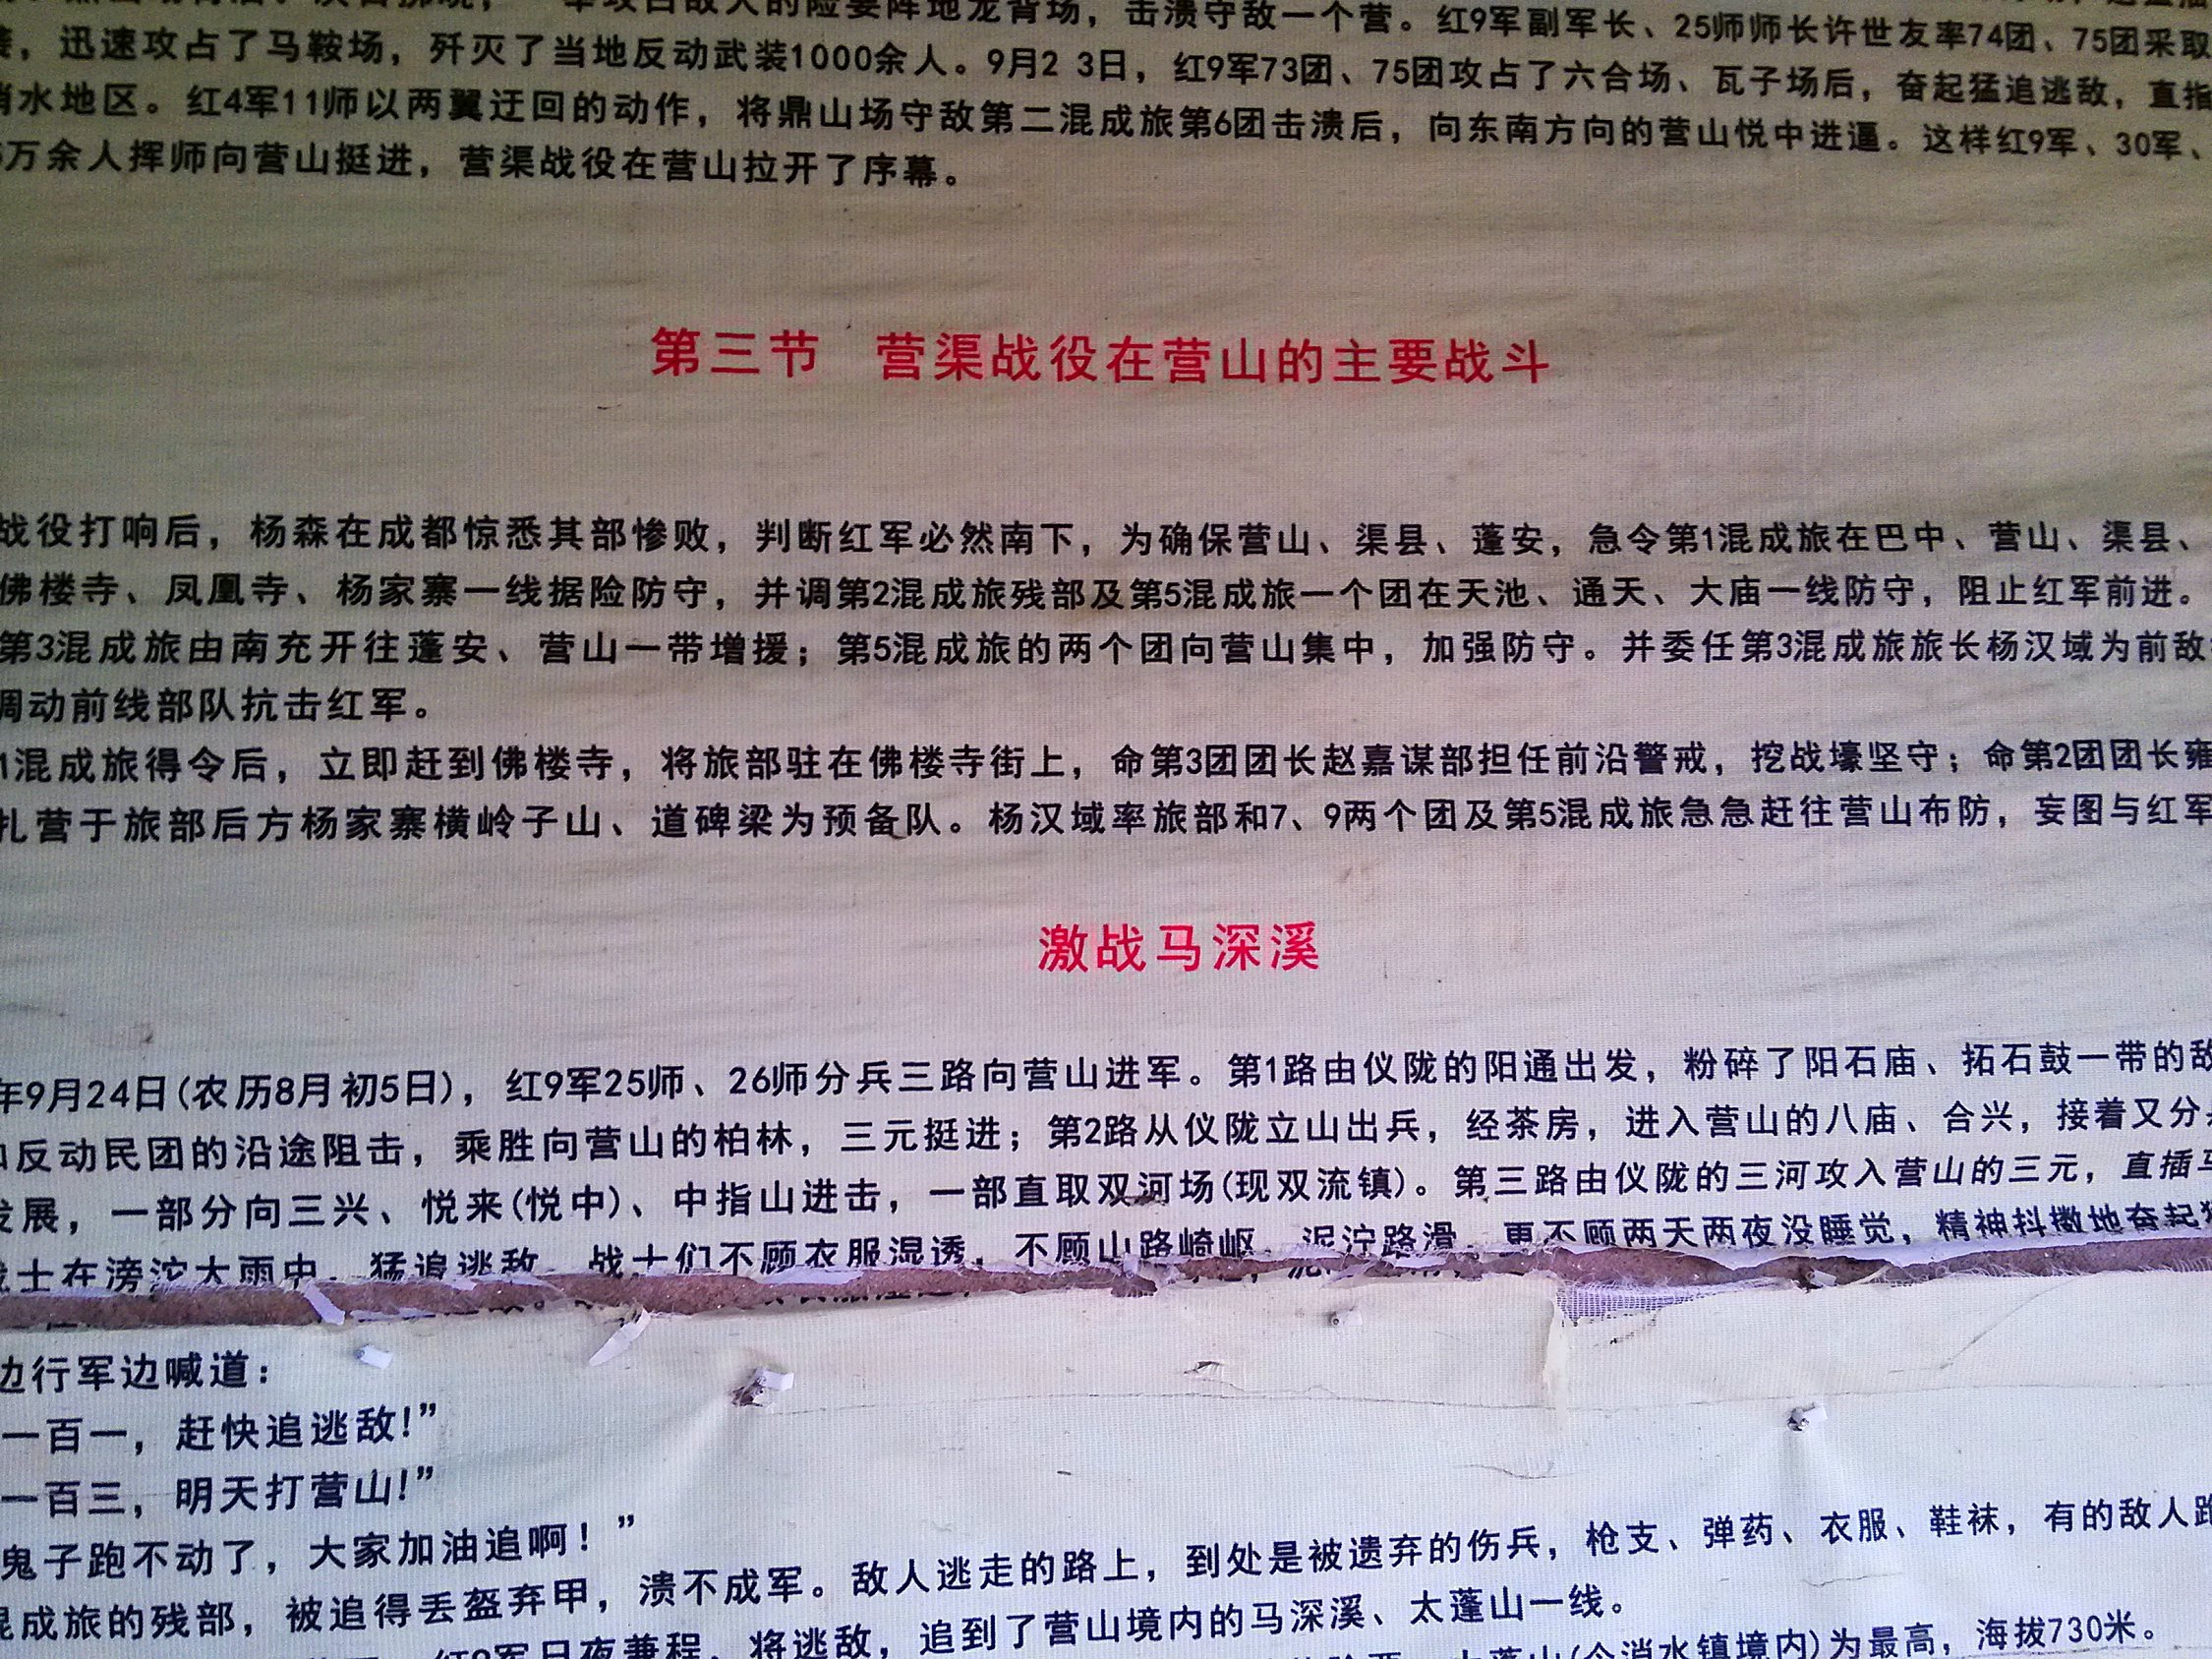 的险要阵地龙背场，击溃守敌一个营。红9军副军长、25师师长许世友率74团、75团采取
，迅速攻占了马鞍场，歼灭了当地反动武装1000余人。9月2 3日，红9军73团、75团攻占了六合场、瓦子场后，奋起猛追逃敌，直指
消水地区。红4军11师以两翼迂回的动作，将鼎山场守敌第二混成旅第6团击溃后，向东南方向的营山悦中进逼。这样红9军、30军、
万余人挥师向营山挺进，营渠战役在营山拉开了序幕。
第三节 营渠战役在营山的主要战斗
战役打响后，杨森在成都惊悉其部惨败，判断红军必然南下，为确保营山、渠县、蓬安，急令第1混成旅在巴中、营山、渠县、
佛楼寺、凤凰寺、杨家寨一线据险防守，并调第2混成旅残部及第5混成旅一个团在天池、通天、大庙一线防守，阻止红军前进。
第3混成旅由南充开往蓬安、营山一带增援；第5混成旅的两个团向营山集中，加强防守。并委任第3混成旅旅长杨汉域为前敌
调动前线部队抗击红军。
1混成旅得令后，立即赶到佛楼寺，将旅部驻在佛楼寺街上，命第3团团长赵嘉谋部担任前沿警戒，挖战壕坚守；命第2团团长雍
扎营于旅部后方杨家寨横岭子山、道碑梁为预备队。杨汉域率旅部和7、9两个团及第5混成旅急急赶往营山布防，妄图与红军
激战马深溪
年9月24日(农历8月初5日)，红9军25师、26师分兵三路向营山进军。第1路由仪陇的阳通出发，粉碎了阳石庙、拓石鼓一带的敌
反动民团的沿途阻击，乘胜向营山的柏林，三元挺进；第2路从仪陇立山出兵，经茶房，进入营山的八庙、合兴，接着又分
发展，一部分向三兴、悦来(悦中)、中指山进击，一部直取双河场(现双流镇)。第三路由仪陇的三河攻入营山的三元，直插马
战士在滂沱大雨中，猛追逃敌。战士们不顾衣服湿透，不顾山路崎岖，泥泞路滑，更不顾两天两夜没睡觉，精神抖擞地奋起
边行军边喊道：
一百一，赶快追逃敌！”
一百三，明天打营山！”
鬼子跑不动了，大家加油追啊！”
混成旅的残部，被追得丢盔弃甲，溃不成军。敌人逃走的路上，到处是被遗弃的伤兵，枪支、弹药、衣服、鞋袜，有的敌人跑
红9军日夜兼程，将逃敌，追到了营山境内的马深溪、太蓬山一线。
太蓬山(今消水镇境内)为最高，海拔730米。